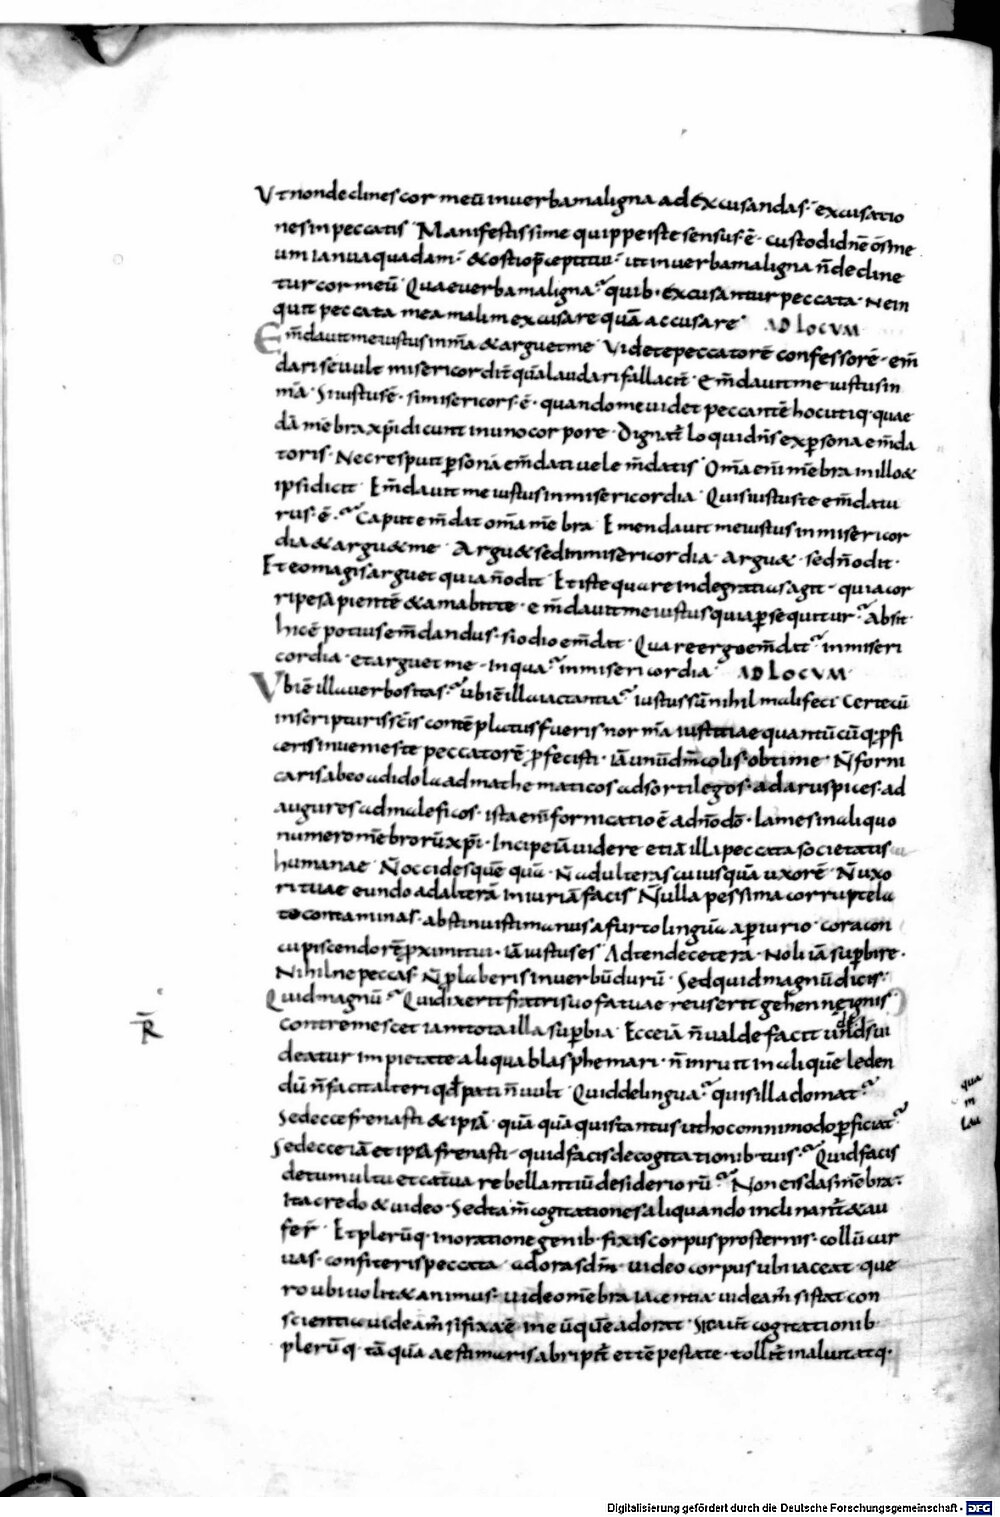 Ut non declines cor meū in uerba maligna ad excusandas excusatio
nes in peccatis Manifestissime quippe iste sensus ē custodi dn̄e os me
um ianua quadam & ostio p̄ceptı tui ut in uerba maligna n̄ decline
tur cor meū Quae uerba maligna quib· excusantur peccata Ne in
quit peccata mea malim excusare quā accusare AD LOCUM
Em̄dauit me iustus in m̄a & arguet me Videte peccatorē confessorē em̄
dari se uult misericordit̄ quā laudari fallacit̄ Em̄dauit me iustus in
m̄a Si iustus ē· si misericors ē· quando me uidet peccantē hoc utiq· quae
dā mēbra xp̄i dicunt in uno corpore Dignat̄ loqui dn̄s ex persona em̄da
toris Nec resputt personā em̄dati uel em̄datis Om̄a eni mēbra in illo &
ipsi dicit Em̄dauit me iustus in misericordia Quis iustus te em̄datu
rus ē· Caput em̄dat om̄a mēbra Emendauit me iustus in misericor
dia & argu& me Argu& sed in misericordia argu& sed n̄ odit
Et eo magis arguet quia n̄ odit Et iste quare inde gratias agit quia cor
ripe sapientē & amabit te em̄dauit me iustus quia persequitur absit
hic ē potius em̄dandus si odio em̄dat Quare ergo em̄dat in miseri
cordia et arguet me Inqua in misericordia AD LOCUM
Vbi ē illa uerbositas ubi ē illa iactantia iustus sū nihil mali feci Certe cū
in scripturis sc̄is contēplatus fueris normā iustitiae quantūcūq· pfi
ceris inuenies te peccatorē pfecisti iā unū dm̄ colis obtime N̄ forni
caris abeo ad idola ad mathematicos ad sortilegos ad aruspices ad
augures ad maleficos ista eni fornicatio ē ad n̄o dō Iam es in aliquo
numero mēbrorū xp̄i Incipe iā uidere etiā illa peccata societatis
humanae N̄ occides quē quā N̄ adulteras cuiusquā uxorē N̄ uxo
ri tuae eundo ad alterā iniuriā facis N̄ulla pessima corruptela
te contaminas abstinuisti manus a furto linguā a periurio cor a con
cupiscendo rē proximi tui iā iustus es Adtende cetera Noli iā superbire
Nihil ne peccas N̄ plaberis in uerbū durū Sed quid magnū dicis
Quid magnū Qui dixerit fratri suo fatuae reus erit gehennę ignis
contremescet iam tota illa superbia Ecce iā n̄ ualde facit unde dn̄s ui
deatur impietate aliqua blasphemari n̄ inruit in aliquē leden
dū n̄ facit alteri qd̄ pati n̄ uult Quid de lingua quis illa domat
Sed ecce frenasti & ipsā quā quā quis tantus ut hoc omnimodo perficiat
Sed ecce iā et ipsā frenasti quid facis de cogitationib· tuis Quid facis
de tumultu et caterua rebellantiū desideriorū Non eis das mēbra
Ita credo & uideo Sed tam̄ cogitationes aliquando inclinant & au
fer̄ Et plerūq· in oratione genib· fixis corpus prosternis collū cur
uas confiteris peccata adoras dm̄ uideo corpus ubi iaceat que
ro ubi uolit& animus uideo mēbra iacentia uideam̄ si stat con
scientia uideam̄ si fixa ē in eū quē adorat Si aut̄ cogitationib·
plerūq· tā quā aestimaris abript̄ et tēpestate tollit̄ in aluit atq·
R̄
qua
m
lau
Digitalisierung gefördert durch die Deutsche Forschungsgemeinschaft - DFG